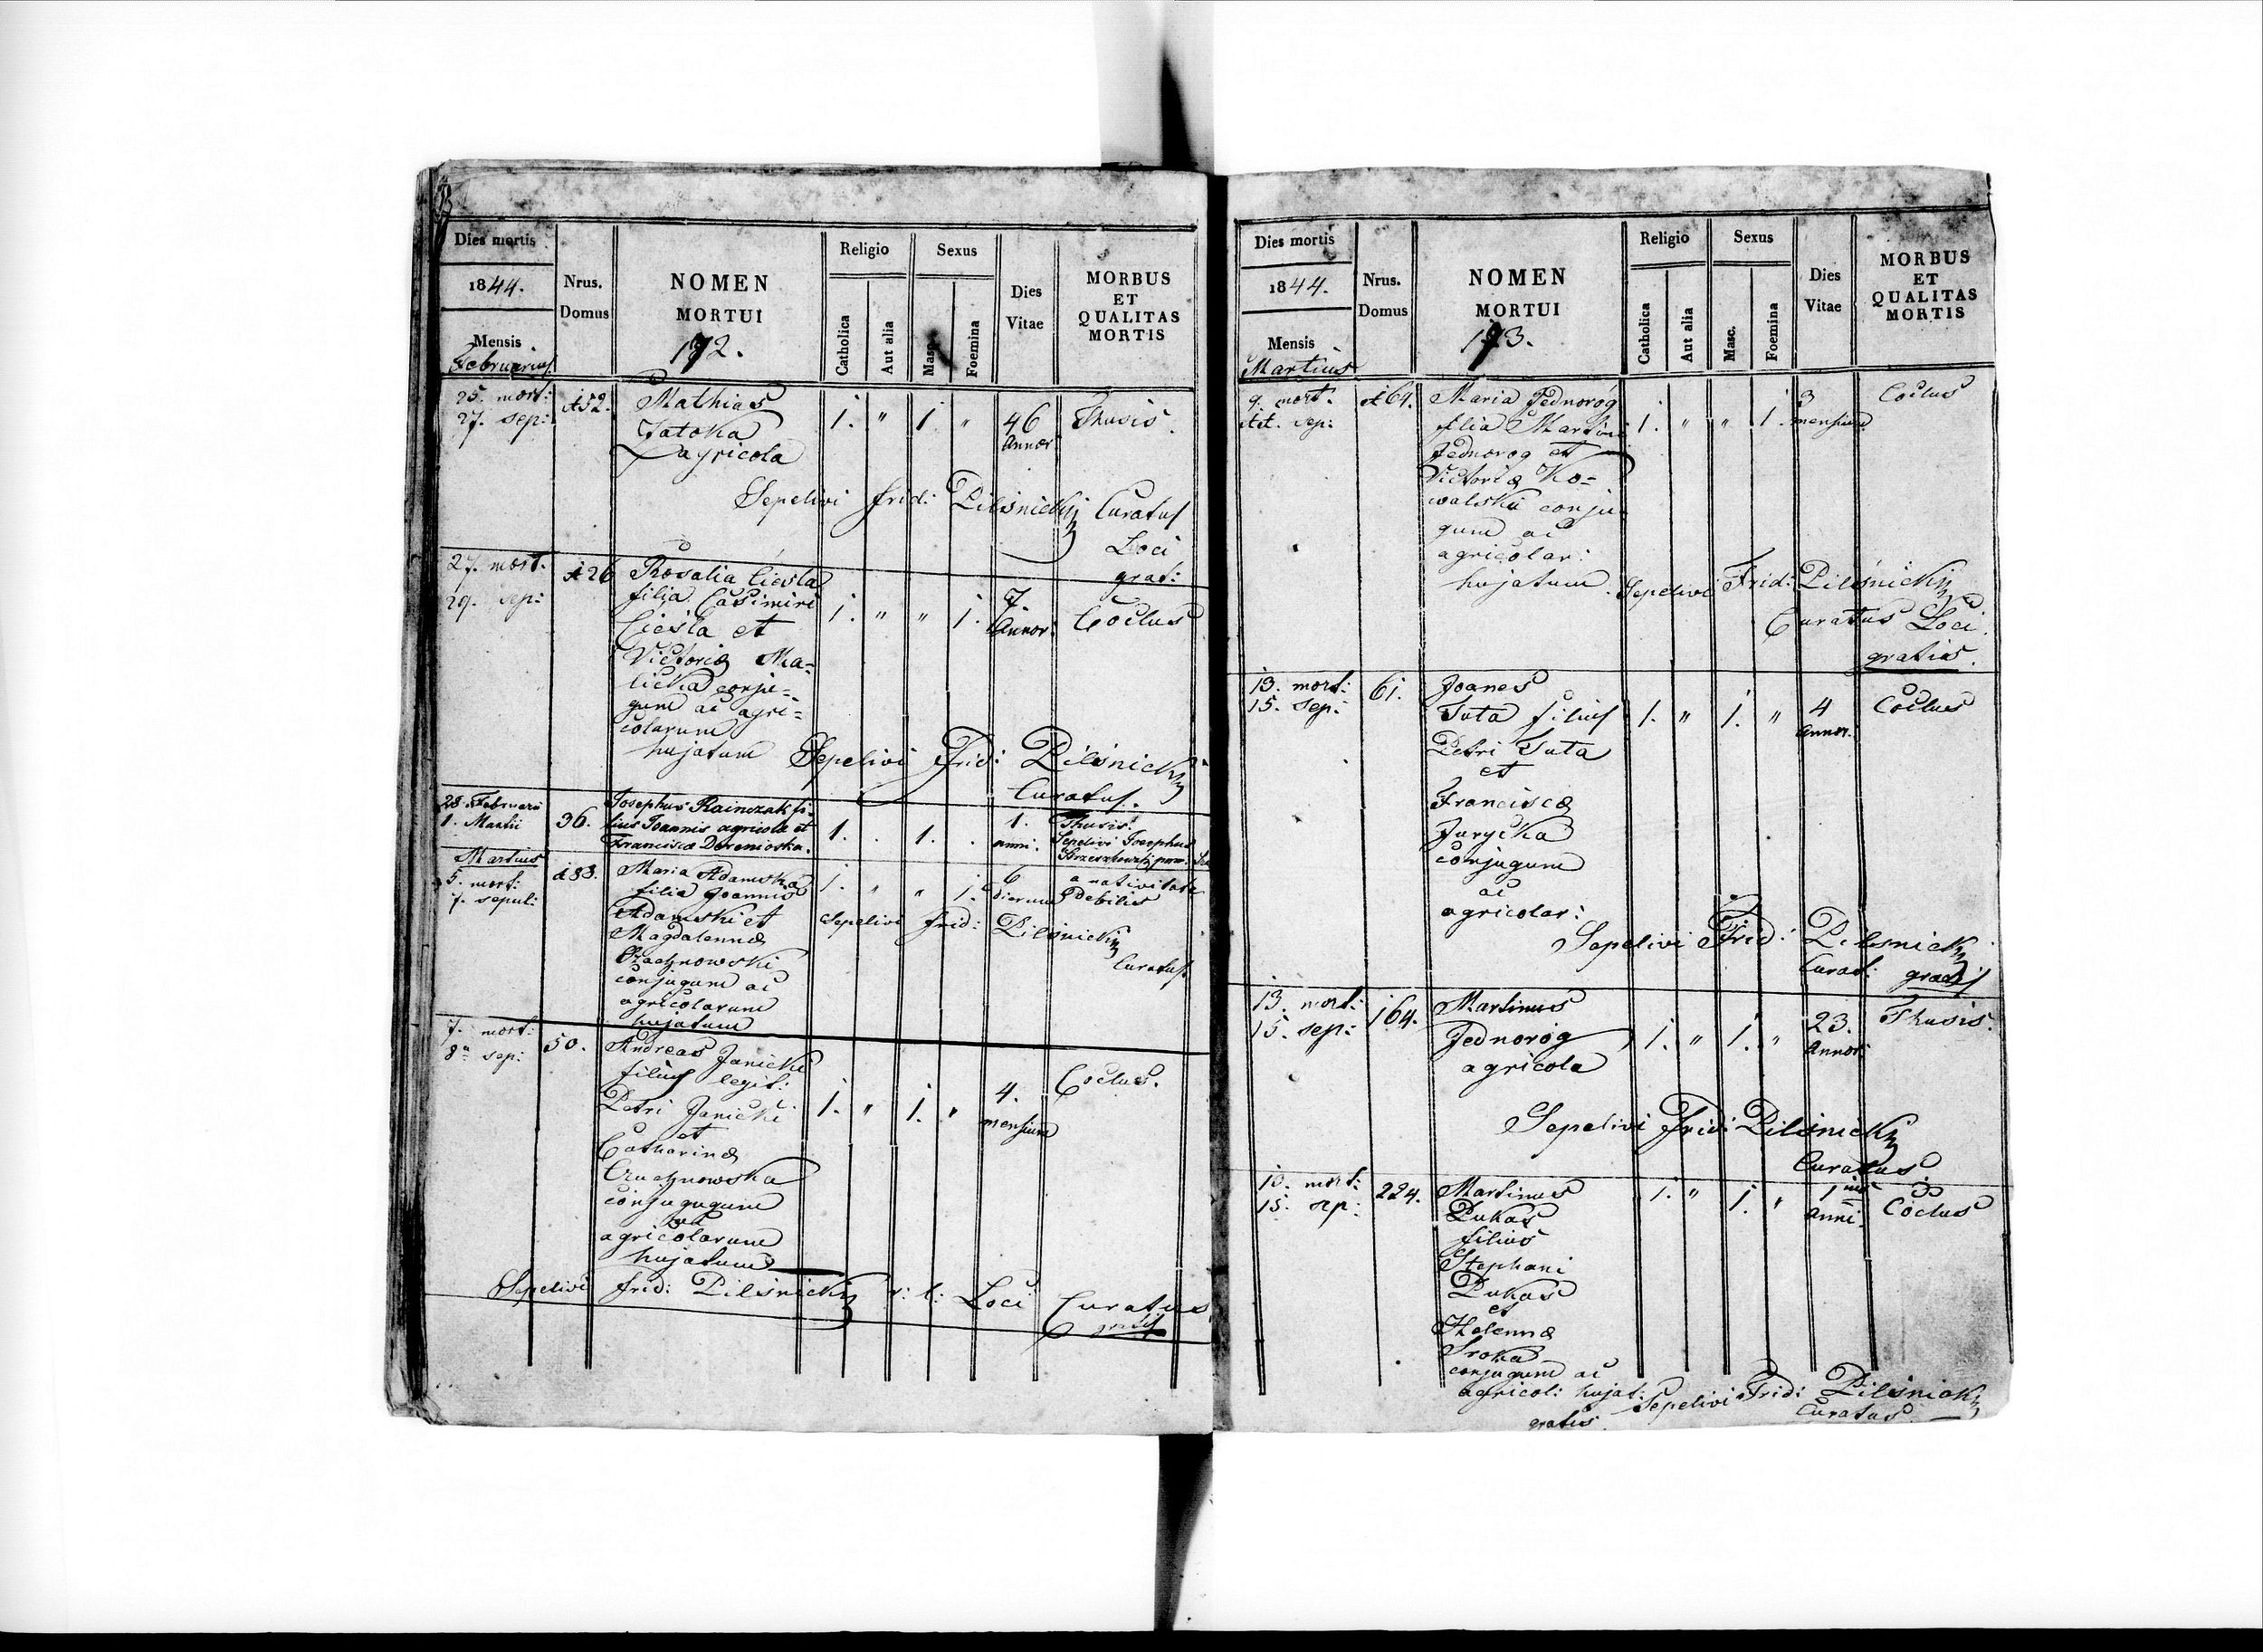 Dies mortis
1844.
Mensis
Februarius
Nrus.
Domus
NOMEN
MORTUI
172.
Religio
Catholica
Aut alia
Sexus
Masc.
Foemina
Dies
Vitae
MORBUS
ET
QUALITAS
MORTIS
25. mort: 152. Mathias 1. " 1. " 46 Thusis.
27. sep: Jatoka Annor:
agricola
Sepelivi frid: Pilsnicky Curatus
Loci
grat:
27. mort. 126 Rosalia Ciesla 7.
29. sep: filia Casimiri 1. " " 1. Annor: Coctus
Ciesla et
Victoriæ Ma-
licka conju-
gum ac agri-
colarum
hujatum Sepelivi Frid: Pilsnicky
Curatus.
28 Februarii Josephus Rainczak fi- 1. Thusis.
1. Martii 36. lius Joannis agricola et 1. . 1. . anni. Sepelivi Josephus
Franciscæ Derenioska.
Martius
5. mort: 183. Maria Adamska 1. " " 1. 6 a nativitate
7. sepul: filia Joannis dierum Debilis
Adamski et Sepelivi frid: Pilsnicky
Magdalennæ Curatus
conjugum ac
agricolarum
hujatum
7. mort: 50. Andreas Janicki Coctus.
8a sep: filius legit: 4.
Petri Janicki 1. " 1. " mensium
et
Catharinæ
conjugugum
ac
agricolarum
hujatum
Sepelivi frid: Pilsnicky r: l: Loci Curatus
gratis
Dies mortis
1844.
Mensis
Martius
Nrus.
Domus
NOMEN
MORTUI
173.
Religio
Catholica
Aut alia
Sexus
Masc.
Foemina
Dies
Vitae
MORBUS
ET
QUALITAS
MORTIS
9. mort. 164. Maria Jednoróg 3 Coctus
11. sep: filia Martini 1. " " 1. mensium
Jednorog et
Victoriæ Ko-
walska conju
gum ac
agricolar:
hujatum. Sepelivi Frid: Pilsnicky
Curatus Loci.
gratis.
13. mort: 61. Joanes
15. sep: Tuta filius 1. " 1. " 4 Coctus
Petri Tuta Annor.
et
Franciscæ
Jurycka
conjugum
ac
agricolar:
Sepelivi Frid: Pilsnicky
Curat: gratis
13. mort: 164. Martinus 23. Thusis.
15. sep: Jednorog 1. " 1. " Annor:
agricola
Sepelivi Frid: Pilsnicky
Curatus
10. mort: 224. Martinus 1. " 1. " 1 ius Coctus
15. sep: Pukas anni.
filius
Stephani
Pukas
et
Helennæ
Sroka
conjugum ac
agricol: hujat: Sepelivi Frid: Pilsnicky
gratis. Curatus